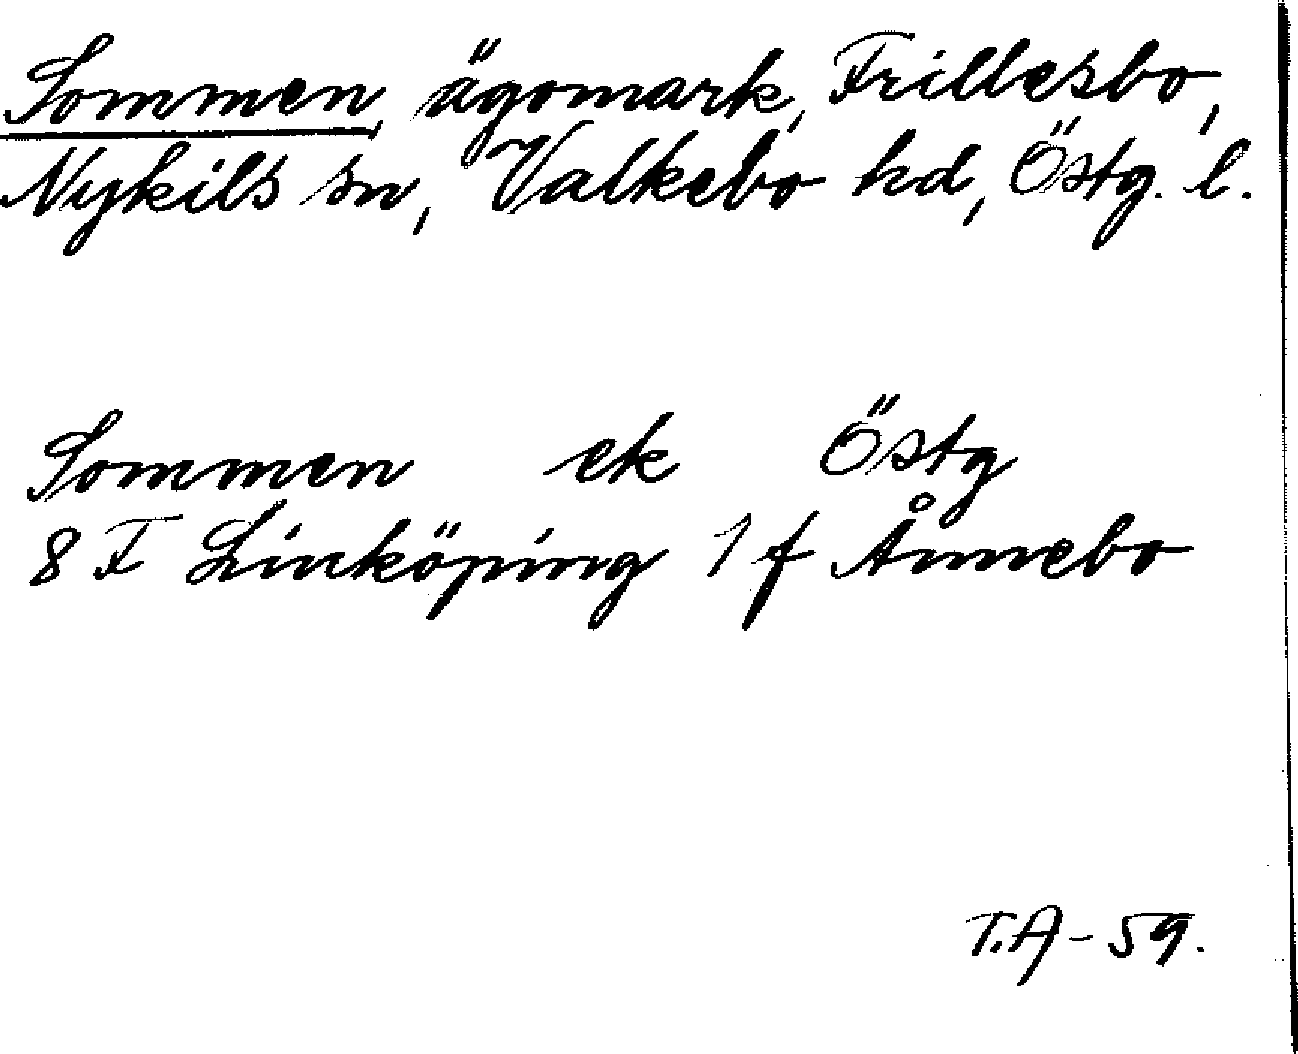 Sommen, ägomark, Frillesbo,
Nykils sn, Valkebo hd, Östg. l.
Sommen ek Östg
8 F Linköping 1 f Ånnebo
T.A - 59.